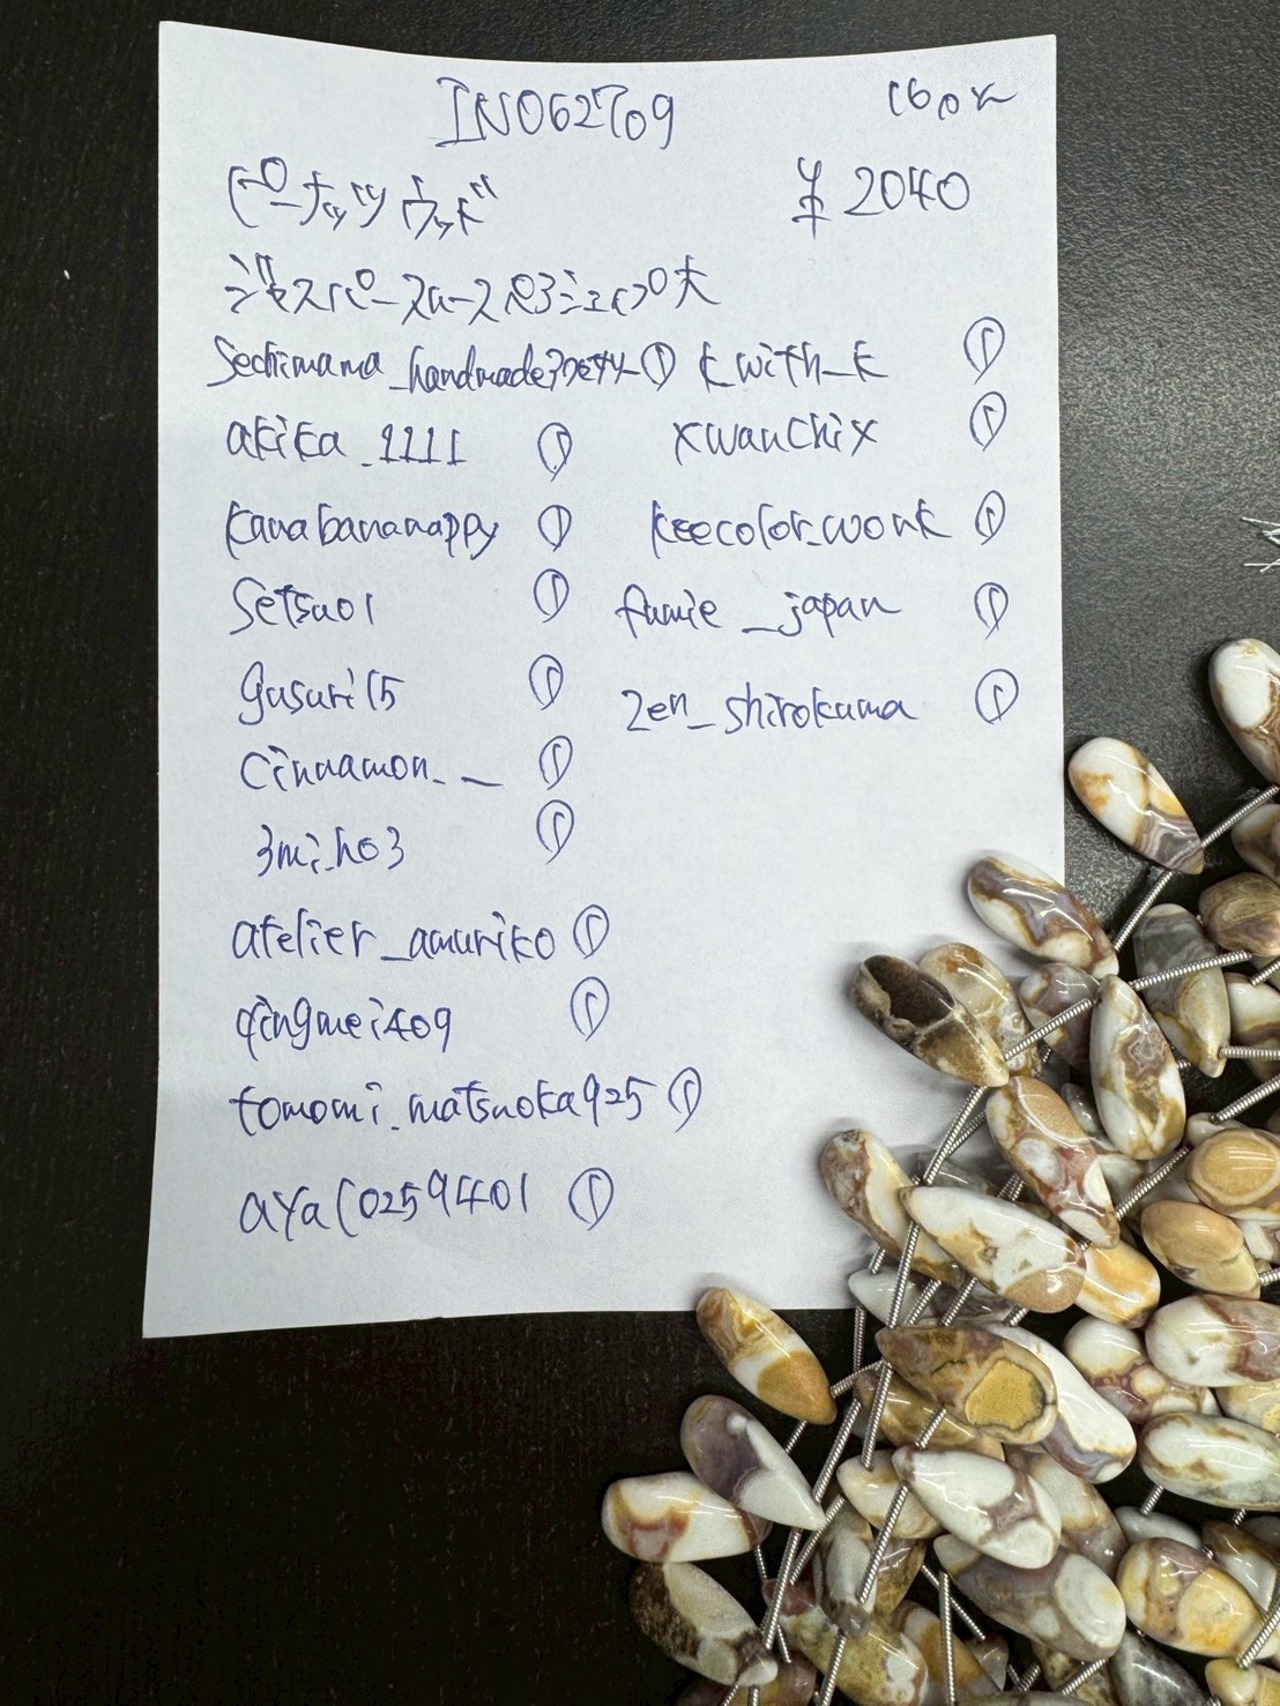 INO62709 16px
ピーナッツウッド ¥2040
ジャスパールースペシェイプ大
Sechimama_handmade ① k_with_k ①
akika_1111 ① xwanchix ①
kanabananappy ① keecolor_work ①
Setsuo1 ① fumie_japan ①
gusuri15 ① zen_shirokuma ①
Cinnamon._ ①
3mi_ho3 ①
atelier_amuriko ①
qingmei409 ①
tomomi.matsuoka925 ①
aya10259401 ①